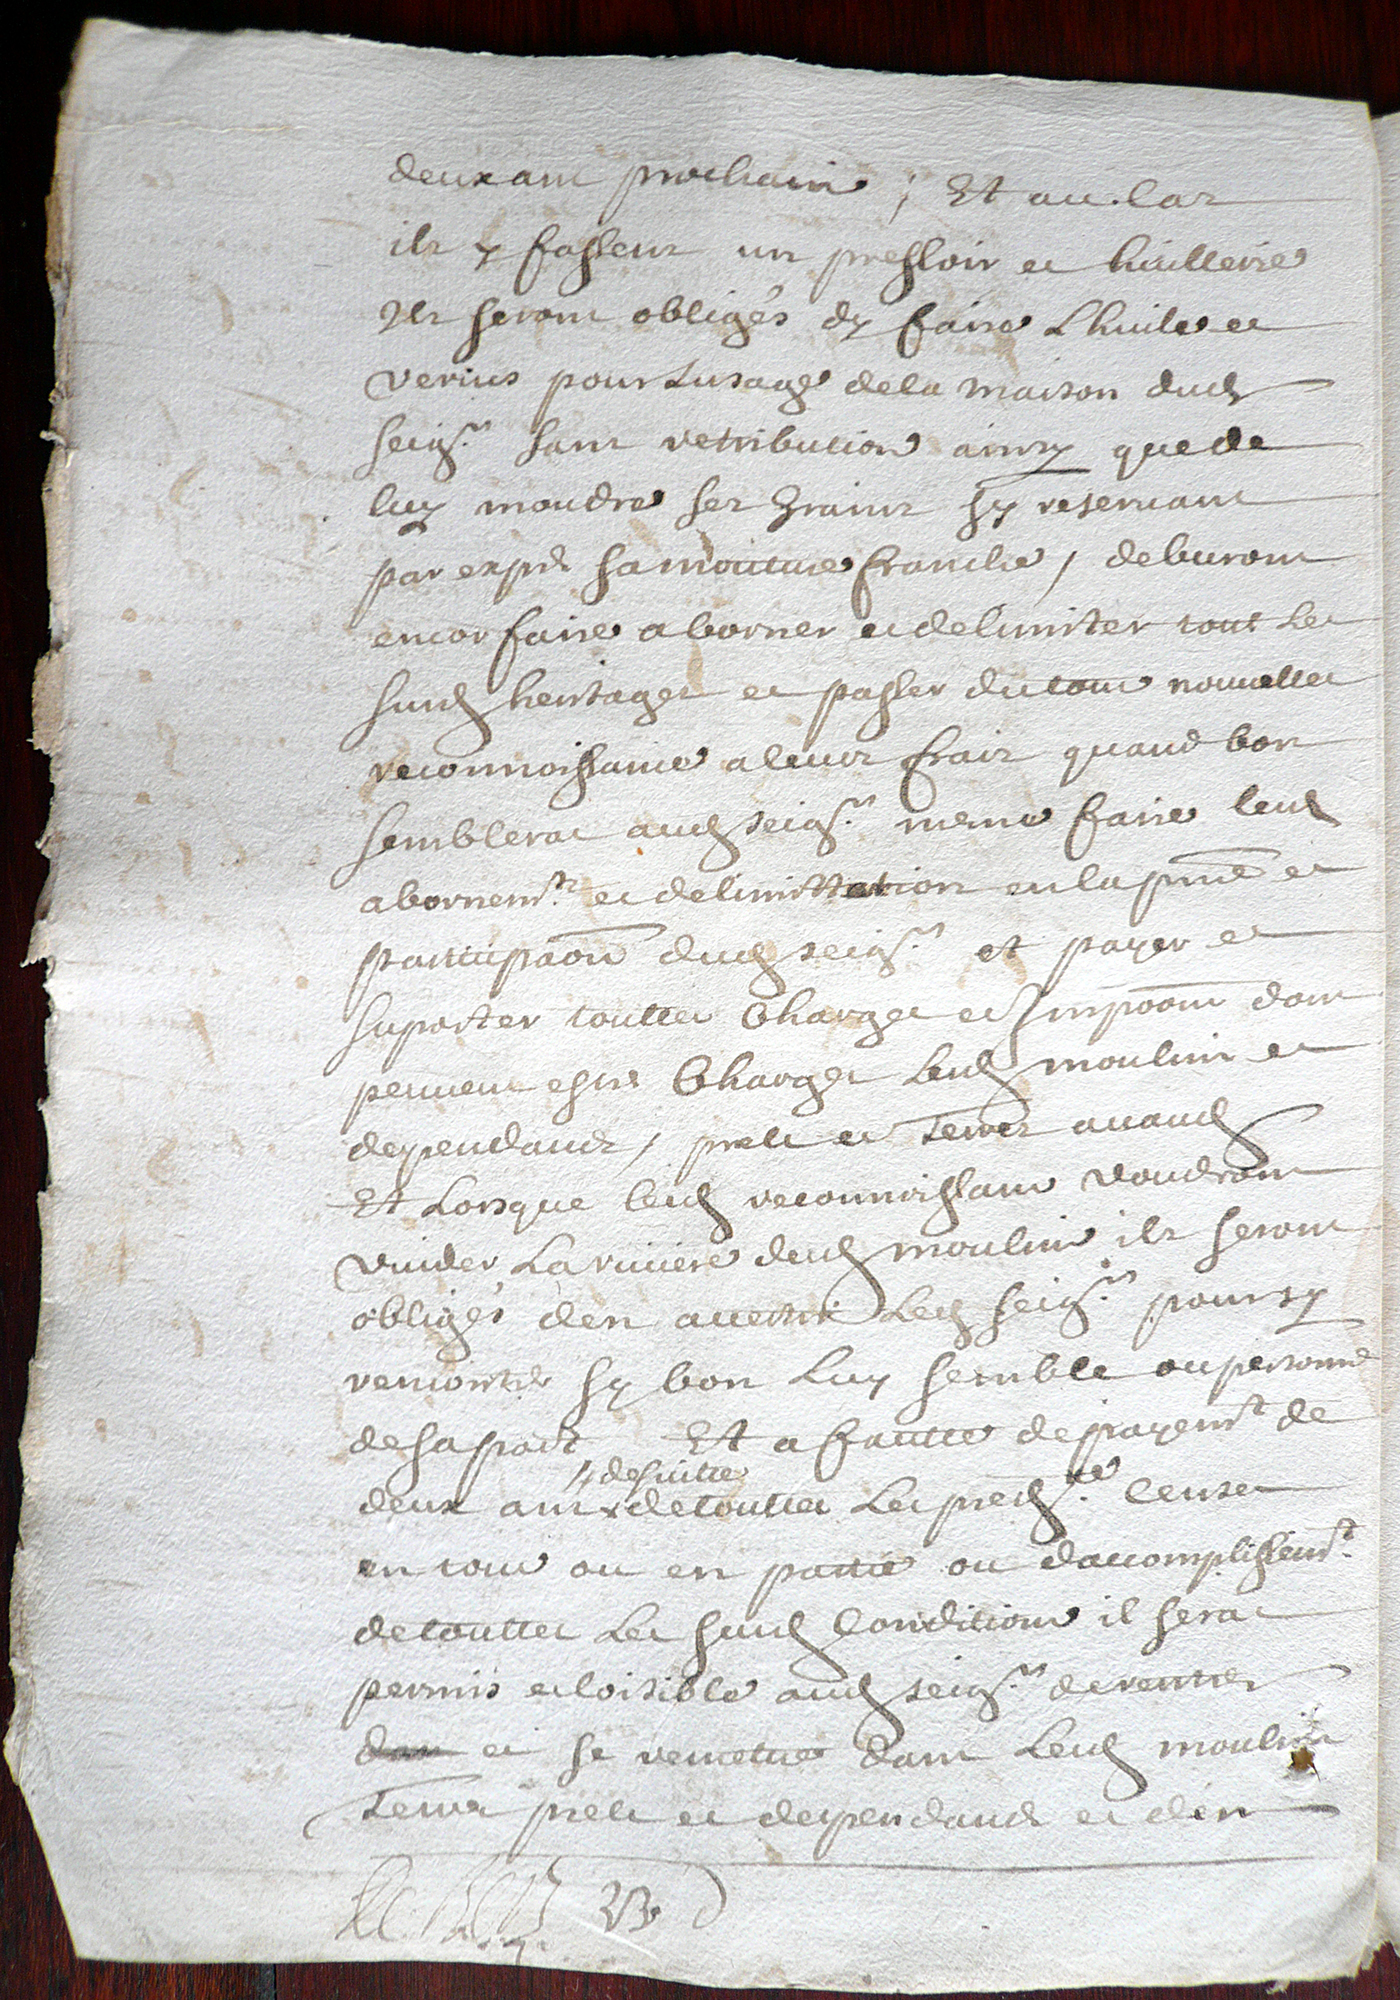 deux ans prochain, Et au. cas
ils y fassent un pressoir et huillerie
Ils seront obligés dy faire Lhuile et
verius pour Lusage dela maison dud
seigr. sans retribution ainsy que de
luy moudre ses Grains sy reservant
par exprès sa mouture franche, deburont
encor faire aborner et delimiter tout Les
susd heritages et passer du tout nouvelles
reconnoissance a leurs frais quand bon
semblerat aud seigr. mesme faire lesd
abornemts. et delimittation en la pnce et
participaon dud seigr. et payer et
suporter touttes Charges et Impoons dont
peuvent estre Charges Lesd moulins et
dependances, prels et Terres avand
Et Lorsque lesd reconnoissans voudront
vuider La riviere dud moulin ils seront
obligés den avertir Led seigr. pour sy
rencontrer sy bon Luy semble ou personne
de sa part Et a fautte de payemt de
desuitte
deux ans x de touttes Les pred. Censes
en tout ou en partie ou daccomplissemt.
de touttes Les susd Conditions il serat
permis et loisible aud seigr. de rentrer
et se remettre dans Lesd moulin
Terres prels et dependances et den